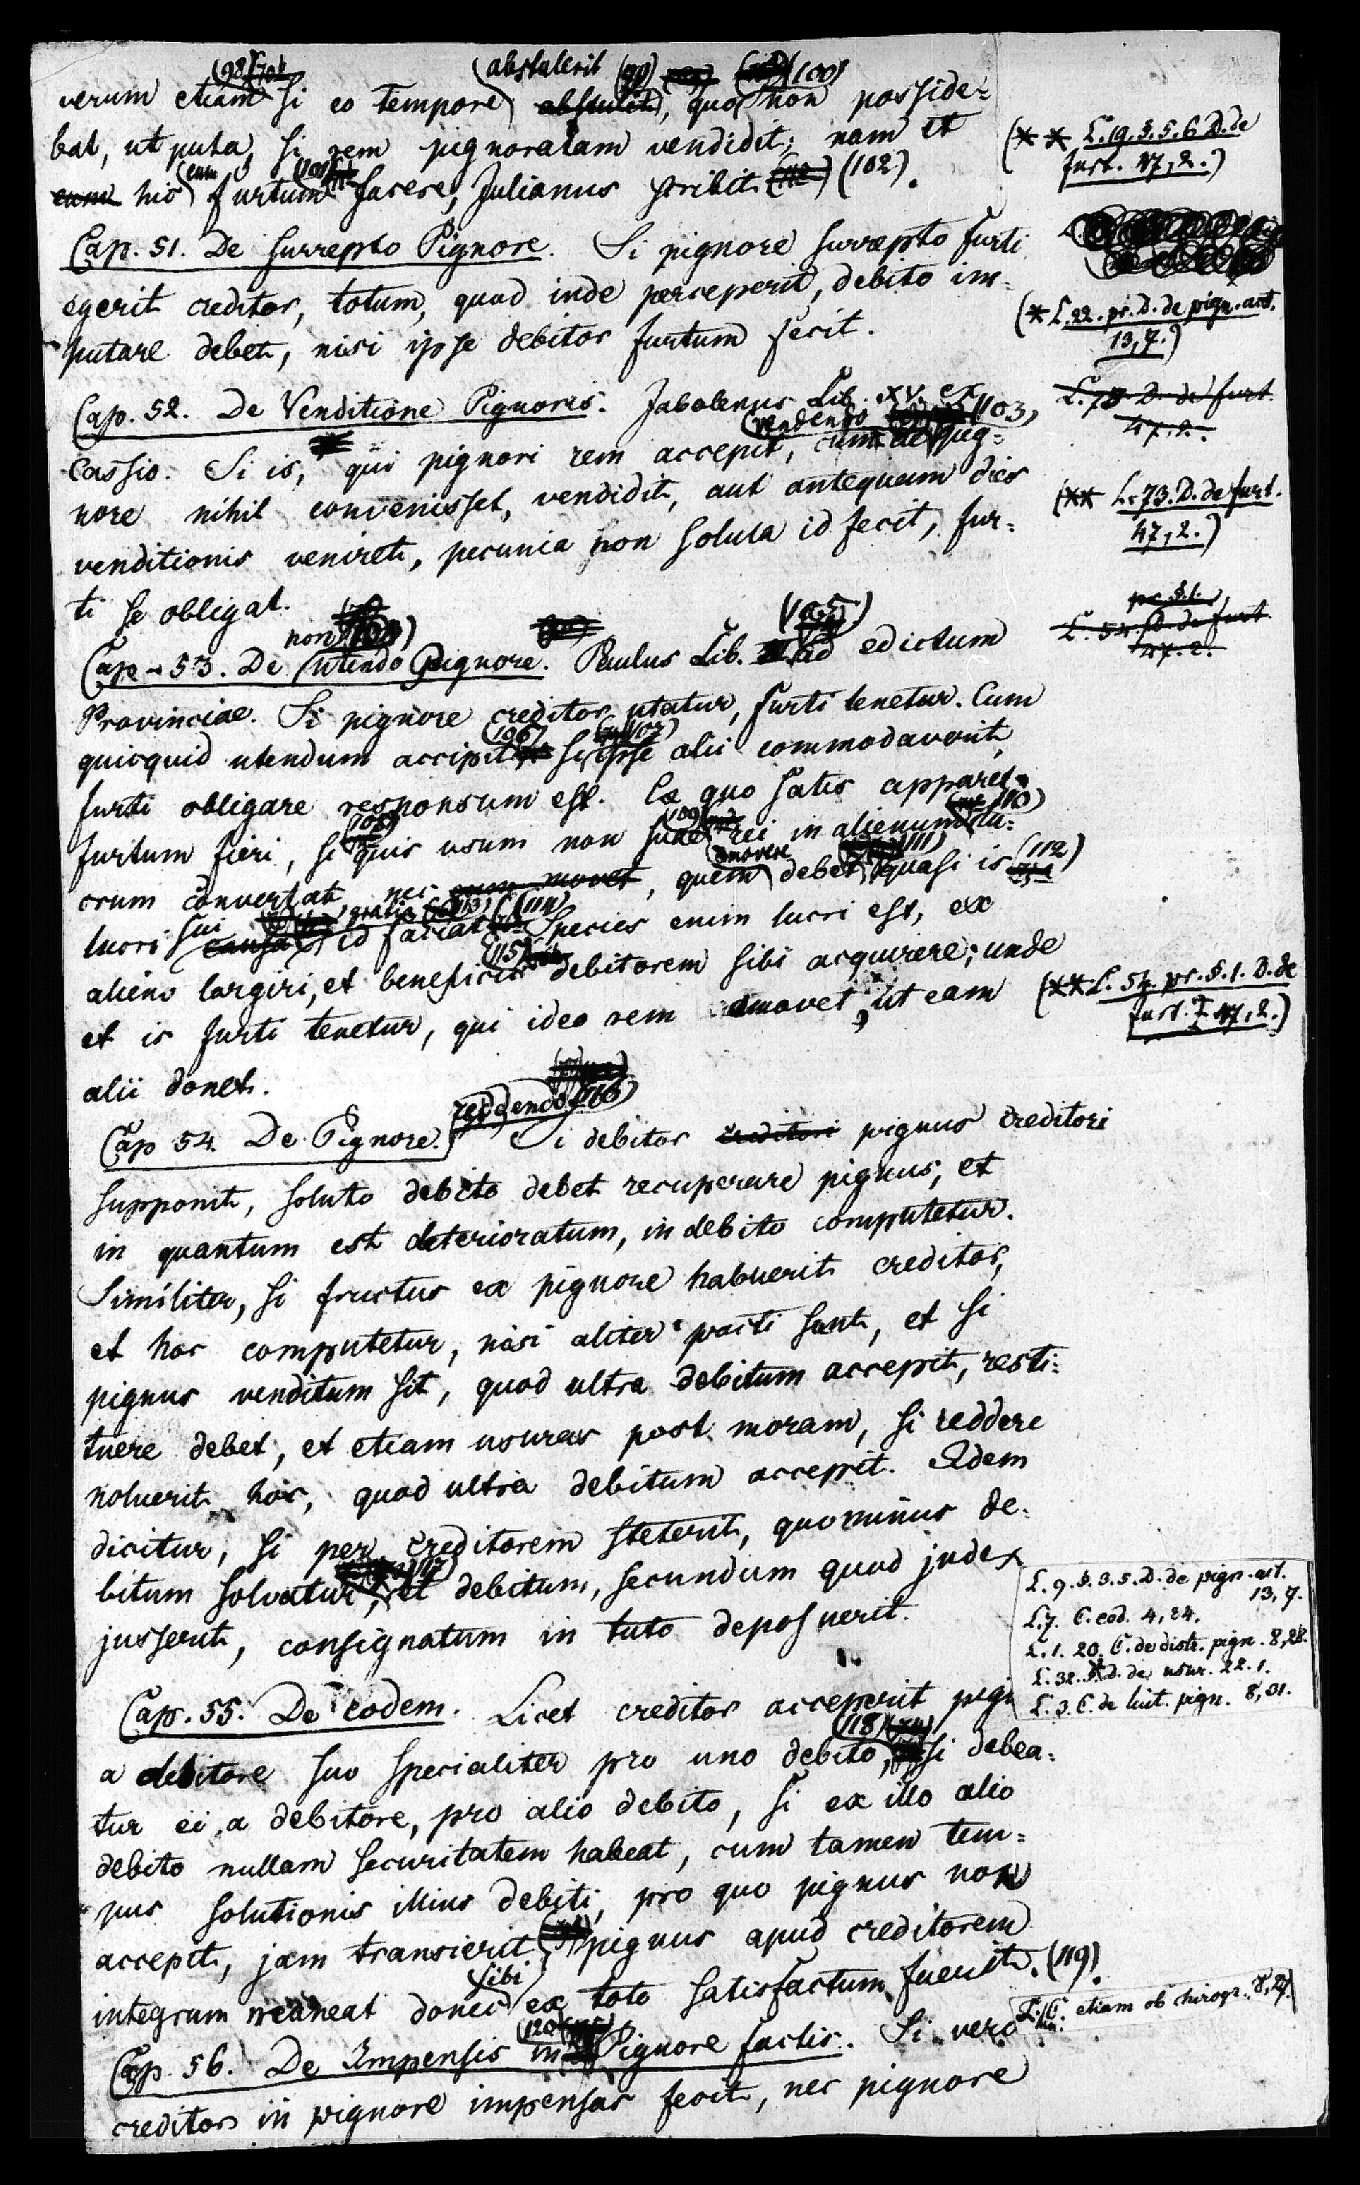 verum etiam (98) si eo tempore (abstulerit (99), quo (100) non posside=
bat, ut puta, si rem pignoratam vendidit; nam et
hic (eum) furtum (101) facere, Julianus scribit (102).
(** L. 19. §. 5. 6. D. de
furt. 47, 2.)
Cap. 51. De surrepto Pignore. Si pignore surrepto furti
egerit creditor, totum, quod inde perceperit, debito im=
putare debet, nisi ipse debitor furtum fecit.
(* L. 22. pr. D. de pign. act.
13, 7.)
Cap. 52. De Venditione Pignoris. Jabolenus Lib. XV. ex
Cassio. Si is, qui pignori rem accepit, cum de (vendendo (103) pig=
nore nihil convenisset, vendidit, aut antequam dies
venditionis veniret, pecunia non soluta id fecit, fur=
ti se obligat.
L. 73 D. de furt
47. 2.
(** L. 73. D. de furt.
47, 2.)
Cap. 53. De (non utendo Pignore. Paulus Lib. (105) ad edictum
Provinciae. Si pignore creditor utatur, furti tenetur. Cum
quicquid utendum accipit (106) si ipse (107) alii commodaverit,
furti obligare responsum est. Ex quo satis apparet
furtum fieri, si (108) quis usum non suae (109) rei in alienum (110) lu=
crum convertat, nec eum movet, quem (movere debet (111) quasi is (112)
lucri sui gratia (113) id faciat (114) Species enim lucri est, ex
alieno largiri, et beneficii (115) debitorem sibi acquirere; unde
et is furti tenetur, qui ideo rem amovet, ut eam
alii donet.
pr. §. 1.
L. 54. D. de furt
47. 2.
(** L. 54. pr. §. 1. D. de
furt. 47, 2.)
Cap 54. De Pignore (reddendo (116) Si debitor creditori pignus creditori
supponit, soluto debito debet recuperare pignus, et
in quantum est deterioratum, in debito computetur.
Similiter, si fructus ex pignore habuerit creditor,
et hoc computetur, nisi aliter pacti sunt, et si
pignus venditum sit, quod ultra debitum accepit, resti=
tuere debet, et etiam usuras post moram, si reddere
noluerit hoc, quod ultra debitum accepit. Idem
dicitur, si per creditorem steterit, quominus de=
bitum solvatur, (117) et debitum, secundum quod judex
jusserit, consignatum in tuto deposuerit.
L. 9. §. 3. 5. D. de pign. act.
13, 7.
L. 7. C. eod. 4, 24.
L. 1. 20. C. de distr. pign. 8, 28.
L. 32. D. de usur. 22. 1.
L. 3. C. de luit. pign. 8, 31.
Cap. 55. De eodem. Licet creditor acceperit pign
a debitore suo specialiter pro uno debito, (118) si debea=
tur ei a debitore, pro alio debito, si ex illo alio
debito nullam securitatem habeat, cum tamen tem=
pus solutionis illius debiti, pro quo pignus non
accepit, jam transierit, pignus apud creditorem
integrum remaneat donec (sibi) ex toto satisfactum fuerit. (119).
etiam ob chirogr. 8, 27.
Cap. 56. De Impensis in (120) Pignore factis. Si vero
creditor in pignore impensas fecit, nec pignore